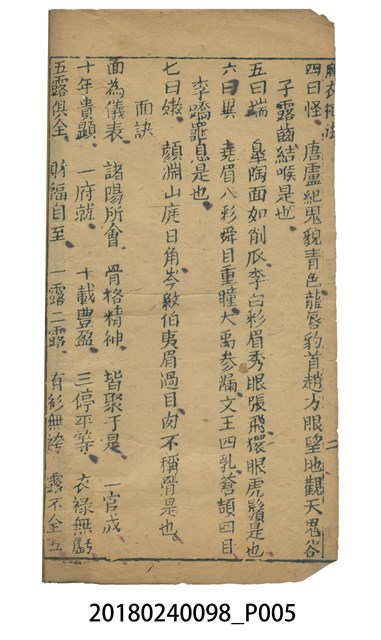 麻衣相法
四曰怪 唐盧紀鬼貌青色龍唇豹首趙方眼望地觀天鬼谷
子露齒結喉是也
五曰端 臯陶面如削瓜李白彩眉秀眼張飛環眼虎鬚是也
六曰異 堯眉八彩舜目重瞳大禹參漏文王四乳蒼頡四目
李嶠龜息是也
七曰嫩 顔淵山庭日角岑敫伯夷眉過目肉不稱骨是也
面訣
面為儀表 諸陽所會 骨格精神 皆聚于是 一官成
十年貴顯 一府就 十載豊盈 三停平等 衣祿無虧
五露俱全 財福自至 一露二露 有衫無袴 露不全五
二
20180240098_P005